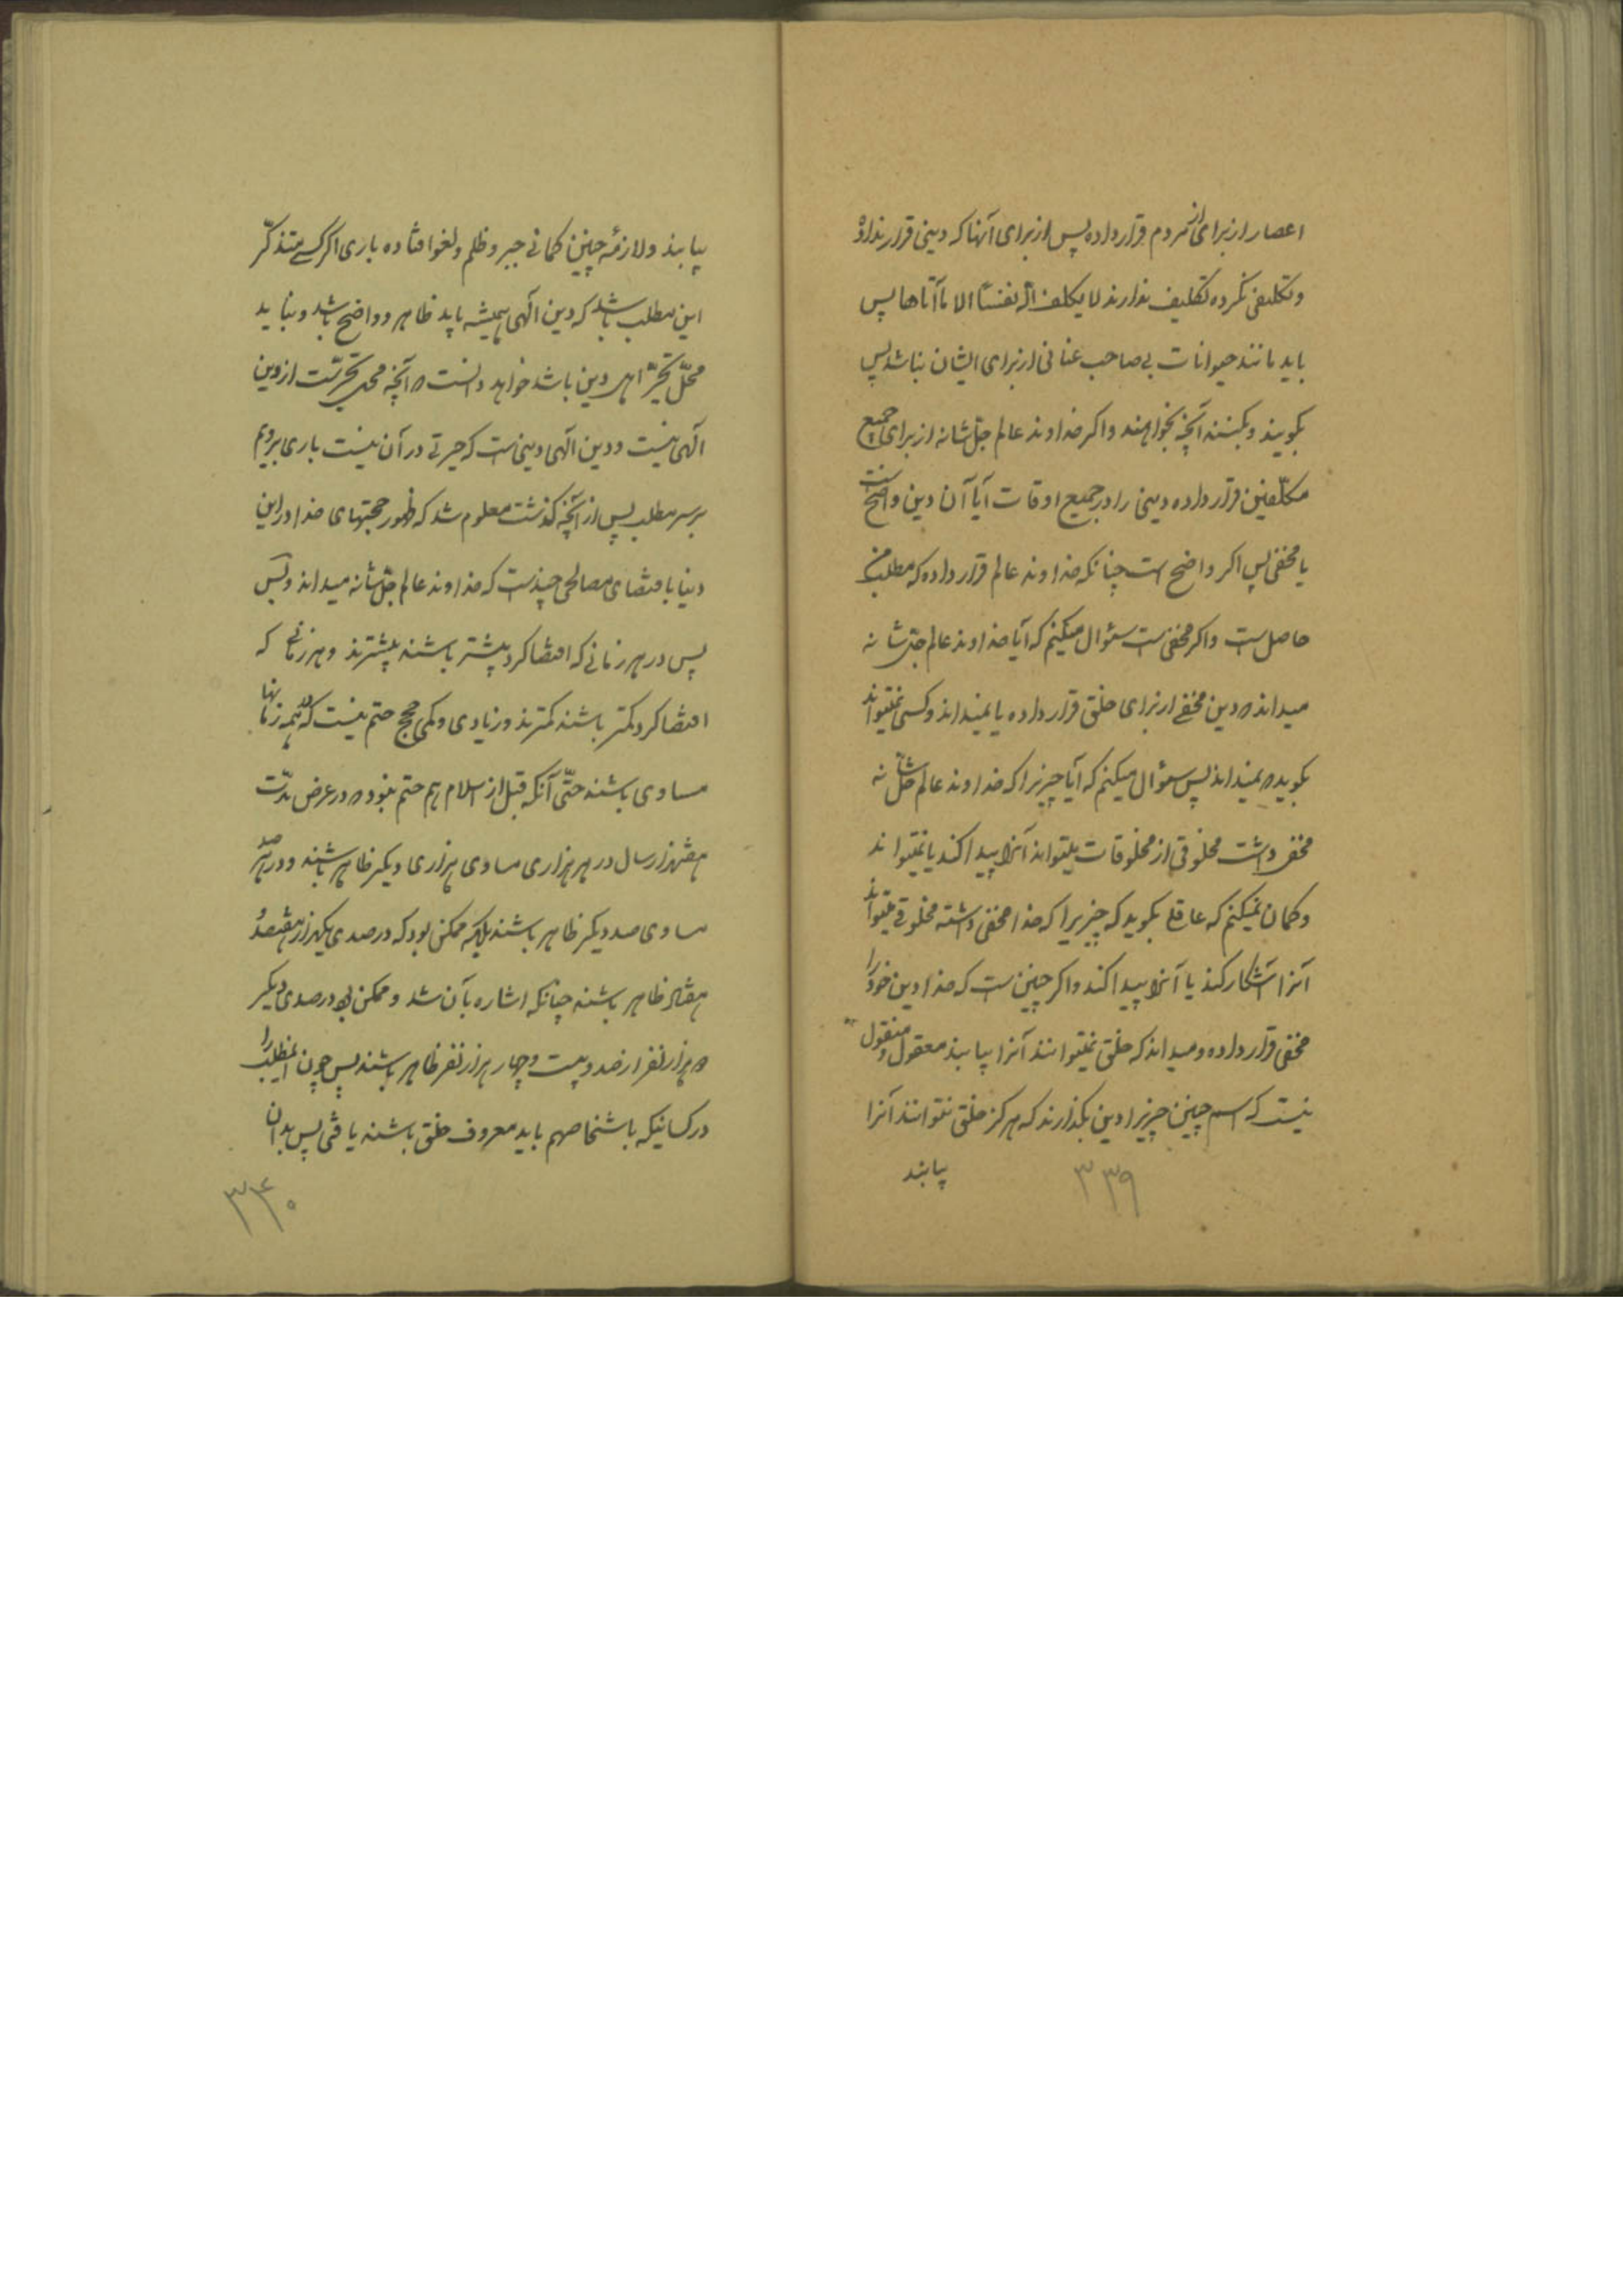 اعصار از برای آن مردم قرار داده پس از برای آنها که دینی قرار نداده
و تکلیفی نکرده تکلیف ندارند لا یکلف الله نفساً الا ما آتاها پس
باید مانند حیوانات بی صاحب عنانی از برای ایشان نباشد پس
بگویند و بکنند آنچه بخواهند و اگر خداوند عالم جلّ شانه از برای جمیع
مکلّفین قرار داده دینی را در جمیع اوقات آیا آن دین واضح است
یا مخفی پس اگر واضح است چنانکه خداوند عالم قرار داده که مطلب من
حاصل است و اگر مخفی است سؤال میکنم که آیا خداوند عالم جلّ شانه
میداند که دین مخفی از برای خلق قرار داده یا نمیداند و کسی نمیتواند
بگوید که نمیداند پس سؤال میکنم که آیا چیزیرا که خداوند عالم جلّ شانه
مخفی داشت مخلوقی از مخلوقات میتواند آنرا پیدا کند یا نمیتواند
و گمان نمیکنم که عاقلی بگوید که چیزیرا که خدا مخفی داشته مخلوقی میتواند
آنرا آشکار کند یا آنرا پیدا کند و اگر چنین است که خدا دین خود را
مخفی قرار داده و میداند که خلق نمیتوانند آنرا بیابند معقول و منقول
نیست که اسم چنین چیزیرا دین بگذارند که هرگز خلق نتوانند آنرا
بیابند
۳۳۹
بیابند و لازمهٔ چنین گمانی جبر و ظلم و لغو افتاده باری اگر کسی متذکّر
این مطلب باشد که دین الهی همیشه باید ظاهر و واضح باشد و نباید
محلّ تحیّر اهل دین باشد خواهد دانست که آنچه محل تحیّر است از دین
الهی نیست و دین الهی دینی است که حیرتی در آن نیست باری برویم
بر سر مطلب پس از آنچه گذشت معلوم شد که ظهور حجتهای خدا در این
دنیا باقتضای مصالحی چند است که خداوند عالم جلّ شانه میداند و بس
پس در هر زمانی که اقتضا کرد بیشتر باشند بیشترند و هر زمانی که
اقتضا کرد کمتر باشند کمترند و زیادی و کمی حجج حتم نیست که در همه زمانها
مساوی باشند حتّی آنکه قبل از اسلام هم حتم نبود که در عرض مدّت
هفتهزار سال در هر هزاری مساوی هزاری دیگر ظاهر باشند و در هر صد
مساوی صد دیگر ظاهر باشند بلکه ممکن بود که در صدی یکهزار هفتصد
هفتاد ظاهر باشند چنانکه اشاره بآن شد و ممکن بود در صدی دیگر
ده هزار نفر از صد و بیست و چهار هزار نفر ظاهر باشند پس چون این مطلب را
در کسانیکه باشخاصهم باید معروف خلق باشند یافتی پس بدان
۳۴۰